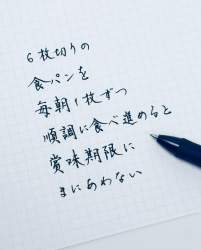 6枚切りの
食パンを
毎朝1枚ずつ
順調に食べ進めると
賞味期限に
まにあわない